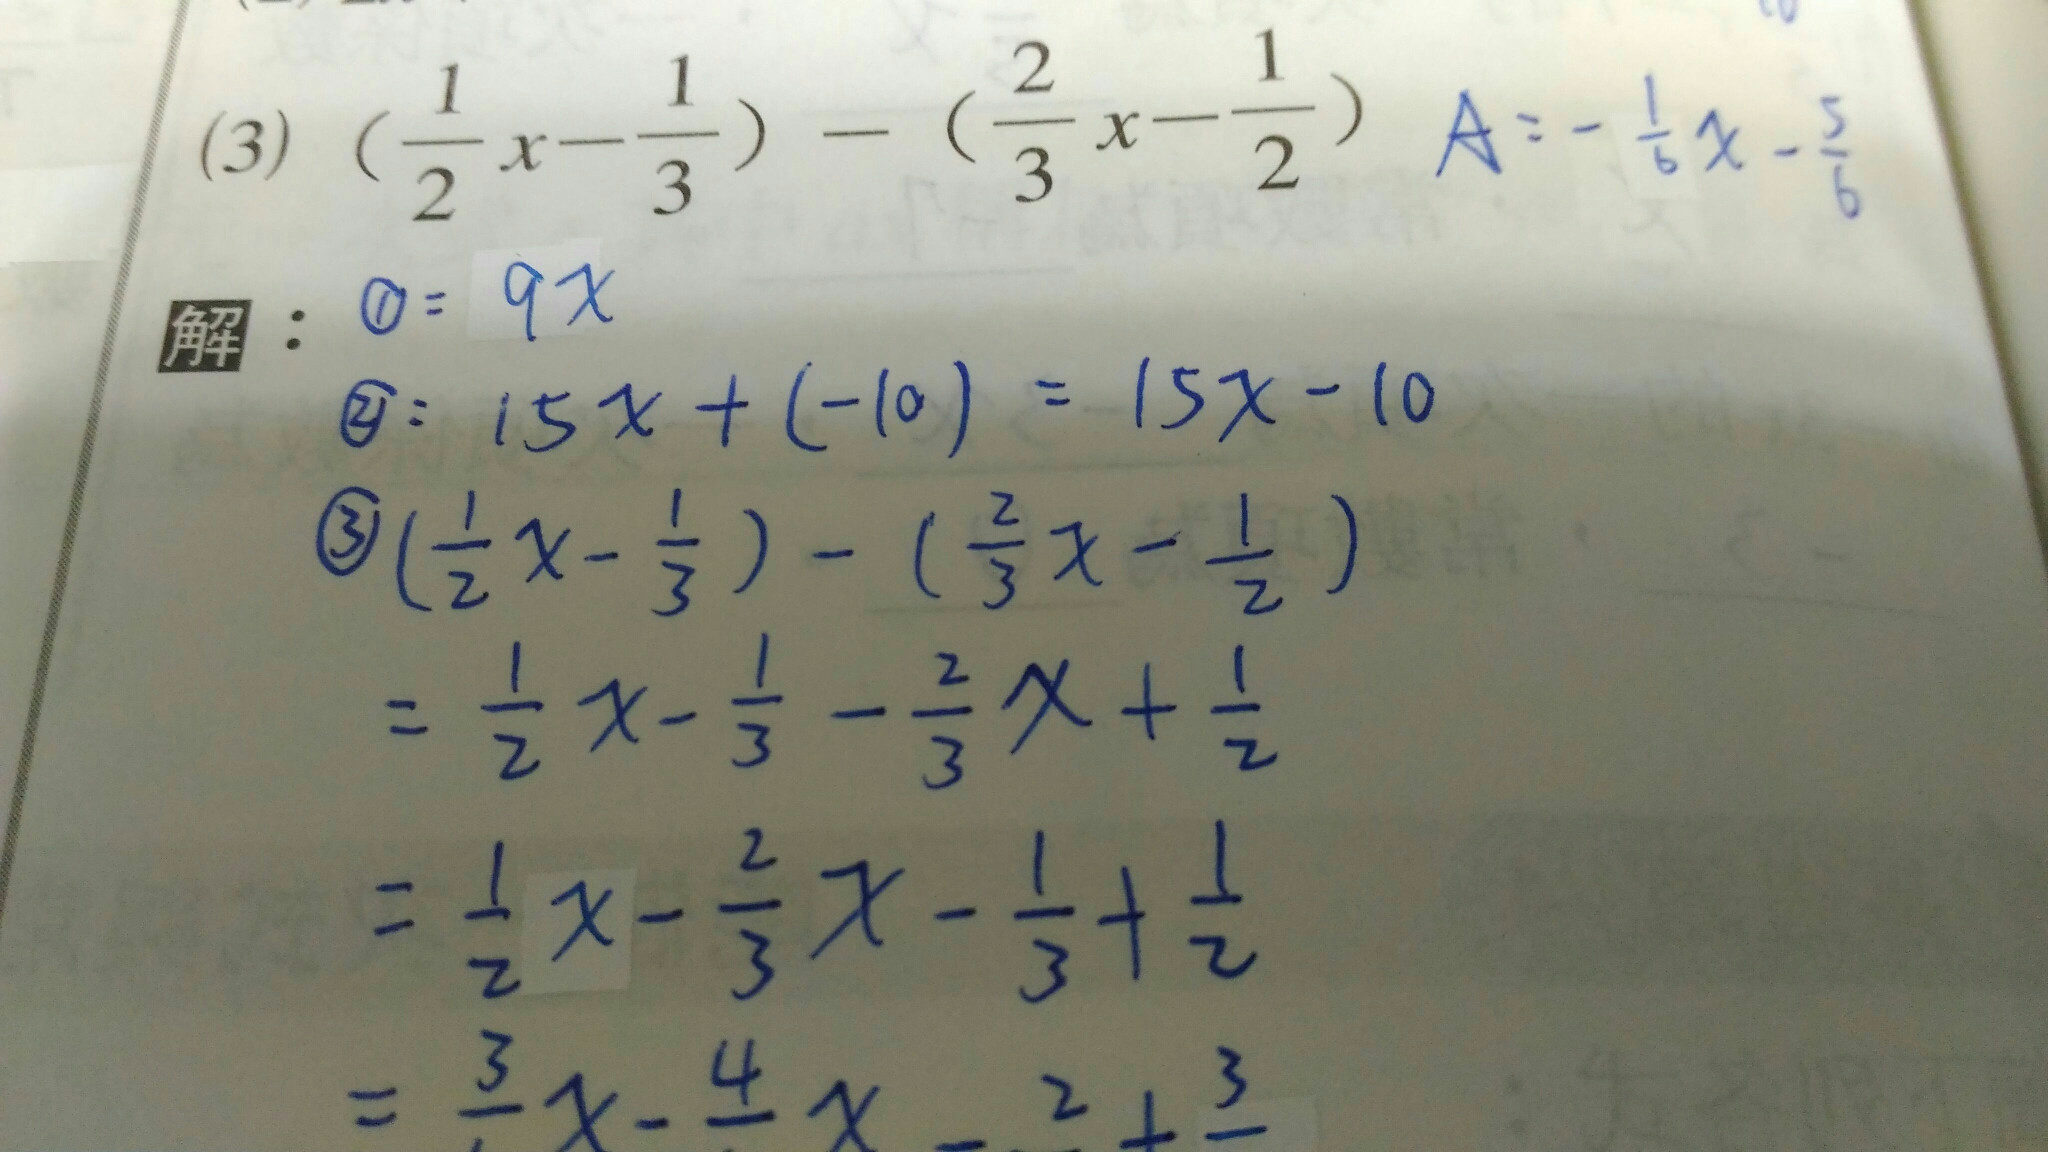 (3) (1/2 x − 1/3) − (2/3 x − 1/2) A = - 1/6 x - 5/6
解： ① = 9x
② = 15x + (-10) = 15x - 10
③ (1/2 x - 1/3) - (2/3 x - 1/2)
= 1/2 x - 1/3 - 2/3 x + 1/2
= 1/2 x - 2/3 x - 1/3 + 1/2